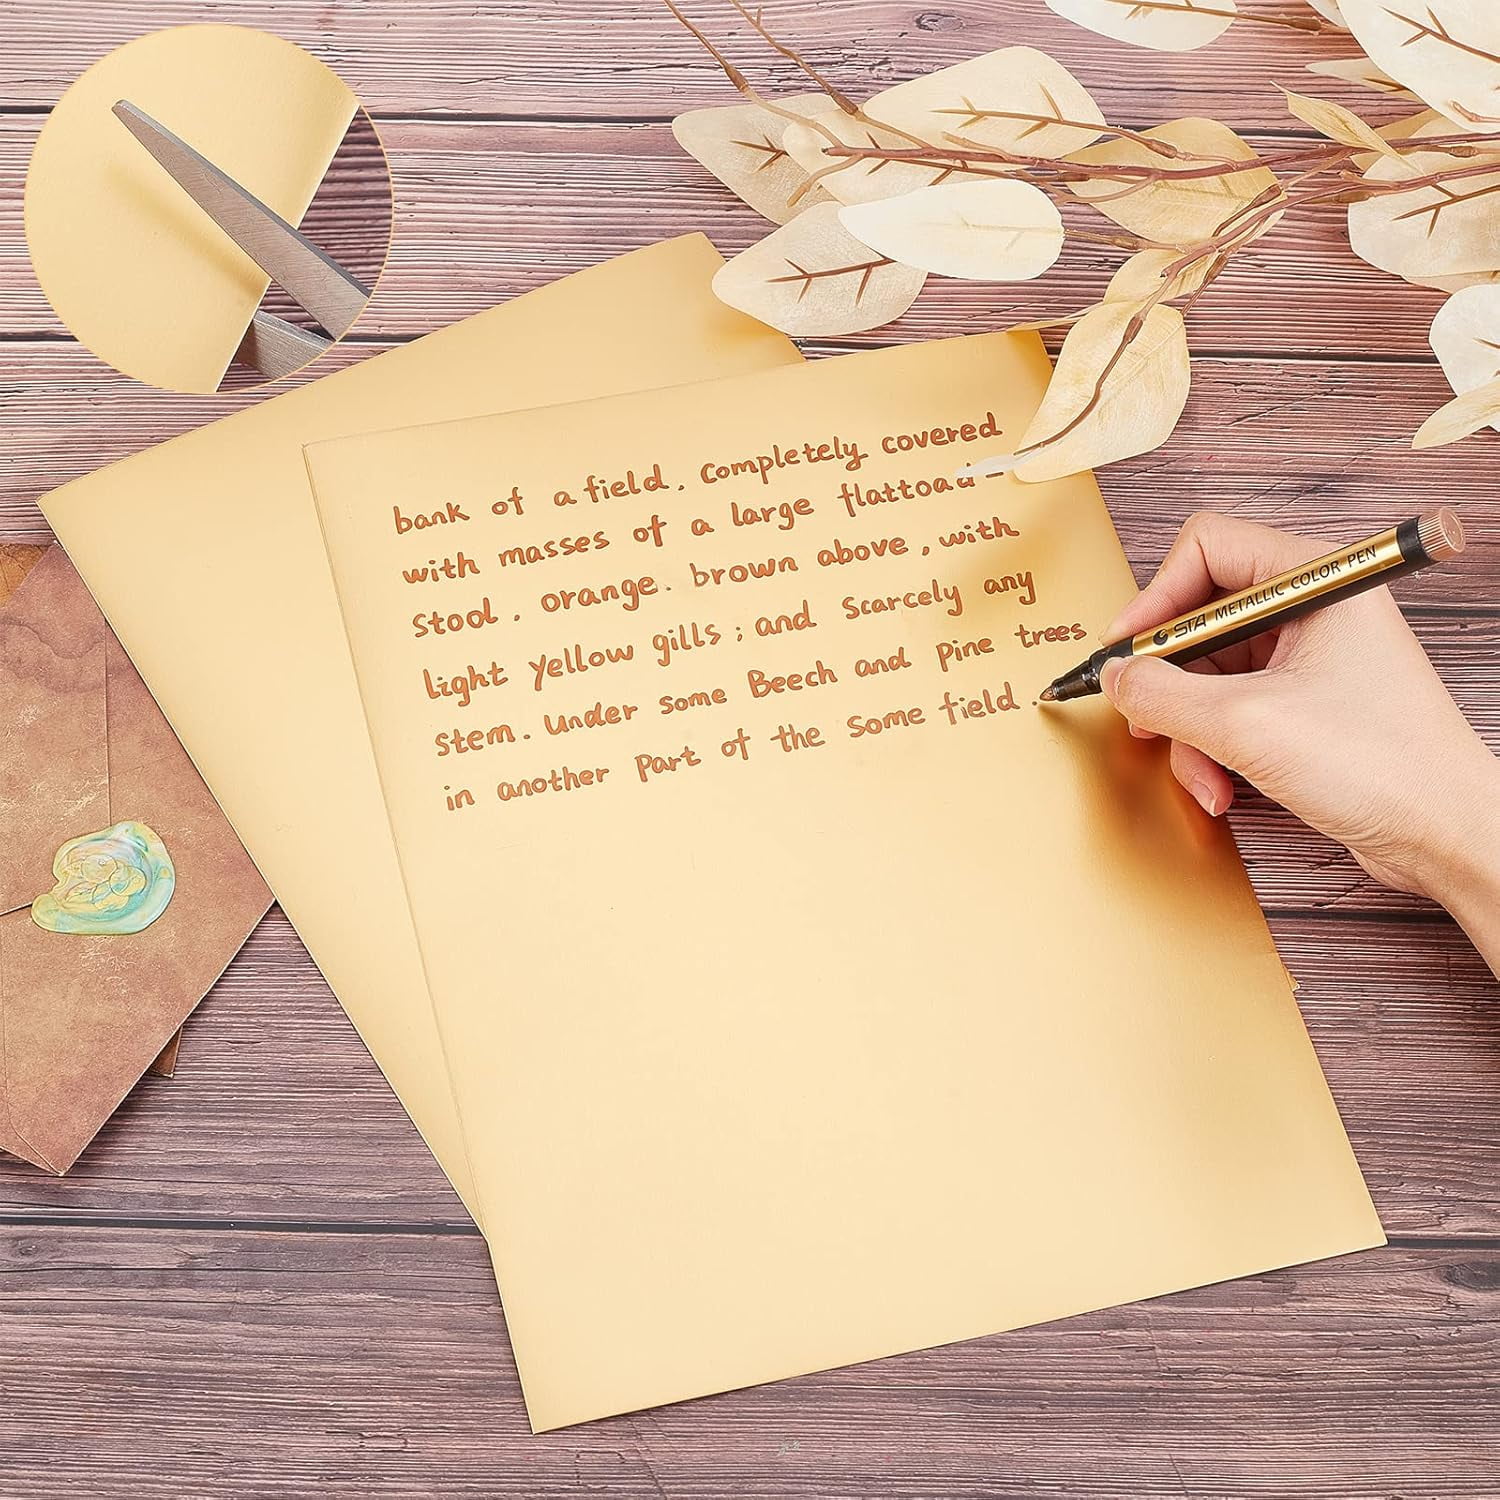 bank of a field. completely covered
with masses of a large flattoad-
stool, orange. brown above, with
light yellow gills; and scarcely any
stem. under some Beech and pine trees
in another part of the some field.
STA METALLIC COLOR PEN